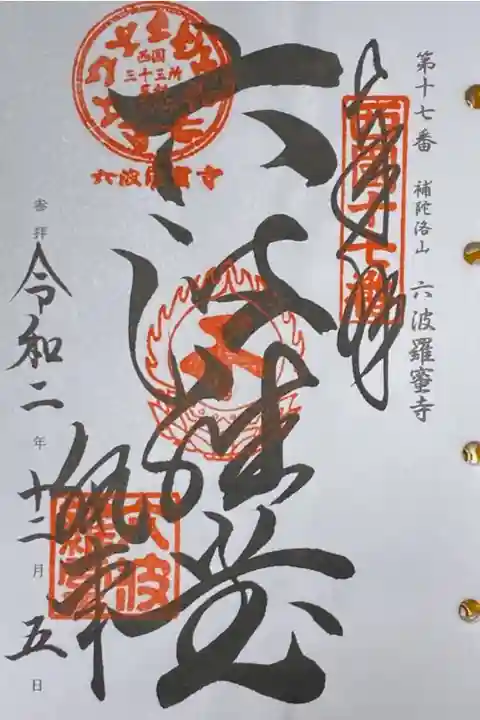 第十七番 補陀洛山 六波羅蜜寺
西國十七番
西国
三十三所
六波羅蜜寺
六波羅堂
参拝 令和二年十二月五日